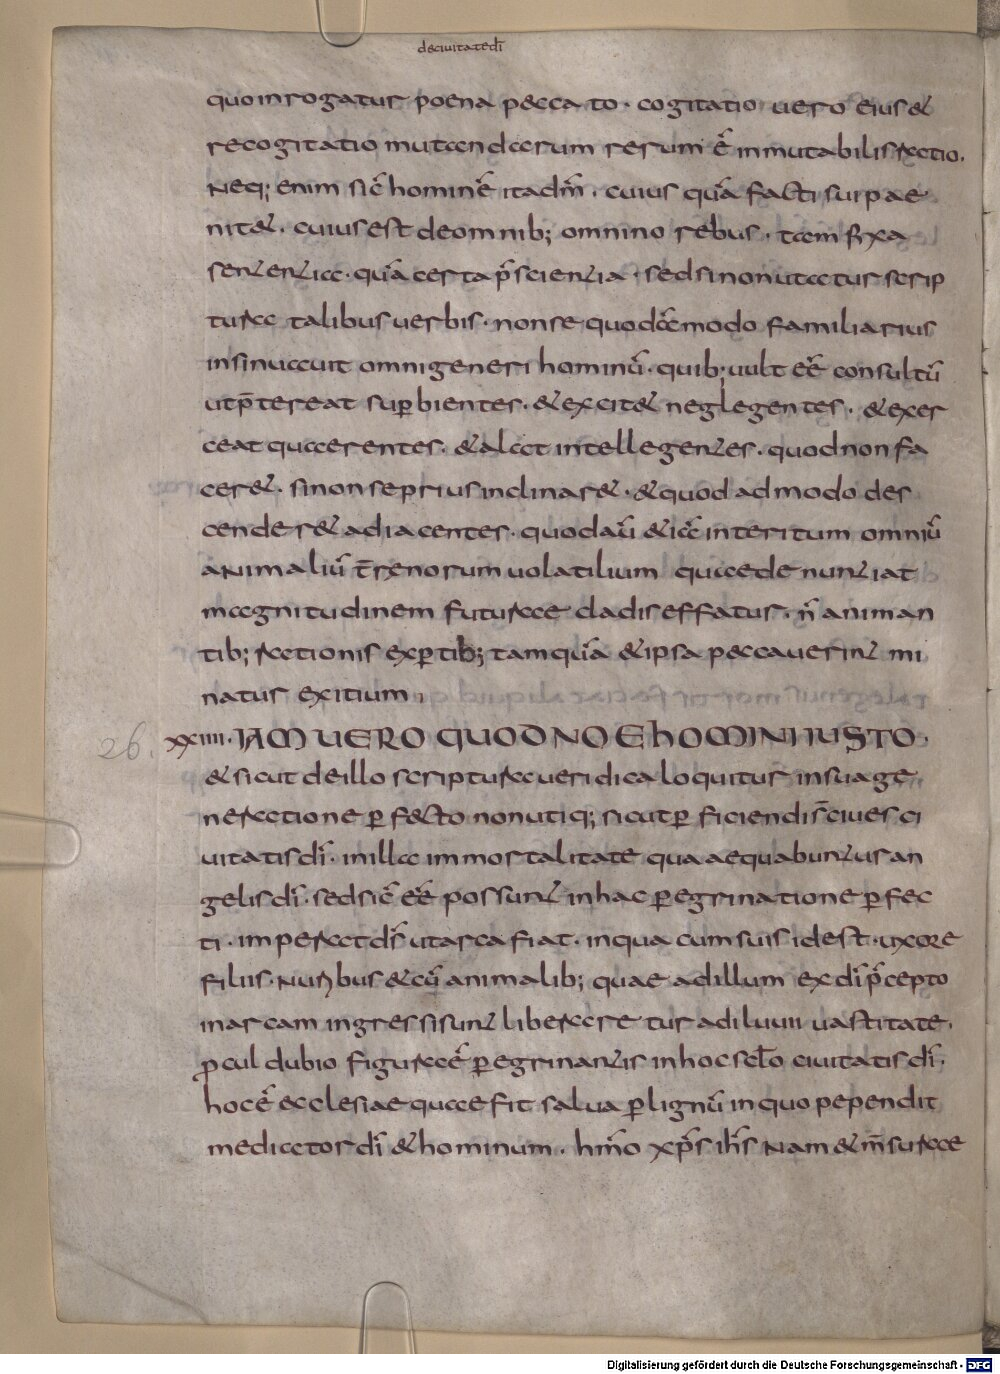 deciuitatedī
quo inrogatur poena peccato · cogitatio uero eius &
recogitatio mutandarum rerum ē inmutabilis ratio.
Neq; enim sic̄ hominē ita dm̄ · cuius quā facti sui pae
nit& · cuius est de omnib; omnino rebus · tam fixa
sententia · quā certa p̄scientia · sed si non utatur scrip
tura talibus uerbis · non se quodā modo familiarius
insinuauit omni generi hominū · quib; uult eē consultū
ut p̄tereat superbientes · & excit& neglegentes · & exer
ceat quaerentes · & alat intellegentes · quod non fa
cer& · si non se prius inclinar& · & quod ad modo des
cender& ad iacentes · quod aū & iā interitum omniū
animaliū t̄renorum uolatilium quae denuntiat
magnitudinem futurae cladis effatus · ñ animan
tib; rationis expertib; tamquā & ipsa peccauerint mi
natur exitium ·
xxiiii · IAM UERO QUOD NOE HOMINI IUSTO ·
& sicut de illo scriptura ueridica loquitur in sua ge
neratione ꝑfecto non utiq; sicut ꝑficiendi s̄ ciues ci
uitatis dī · in illa immortalitate qua aequabuntur an
gelis dī · sed sic̄ eē possunt in hac ꝑegrinatione ꝑfec
ti · imperat ds̄ ut arca fiat · in qua cum suis id est · uxore
filiis · nuribus & cū animalib; quae ad illum ex dī p̄cepto
in arcam ingressi sunt liberaretur a diluuii uastitate ·
ꝓcul dubio figura ē ꝑegrinantis in hoc sclo ciuitatis dī ·
hoc ē ecclesiae quae fit salua ꝑ lignū in quo pependit
mediator dī & hominum · hmō xp̄s ih̄s Nam & m̄surae
26.
Digitalisierung gefördert durch die Deutsche Forschungsgemeinschaft - DFG